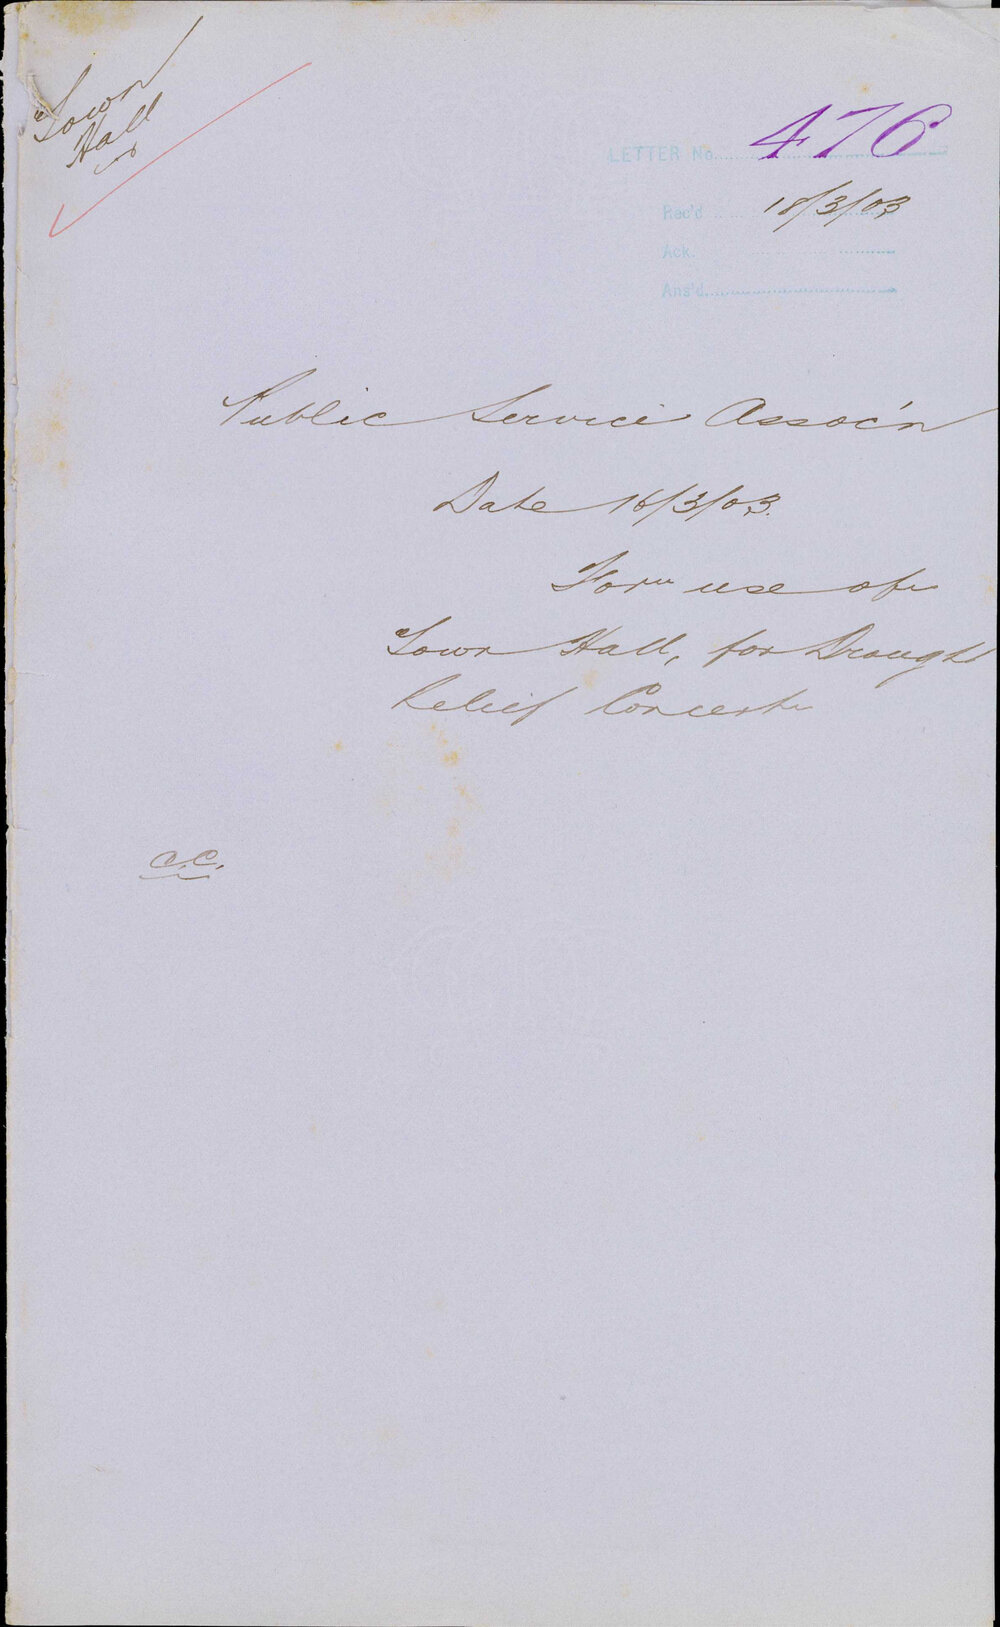 Town
Hall
LETTER No. 476
Rec'd 18/3/03
Ack.
Ans'd.
Public Service Assoc'n
Date 16/3/03.
For use of
Town Hall, for Drought
Relief Concert
C.C.